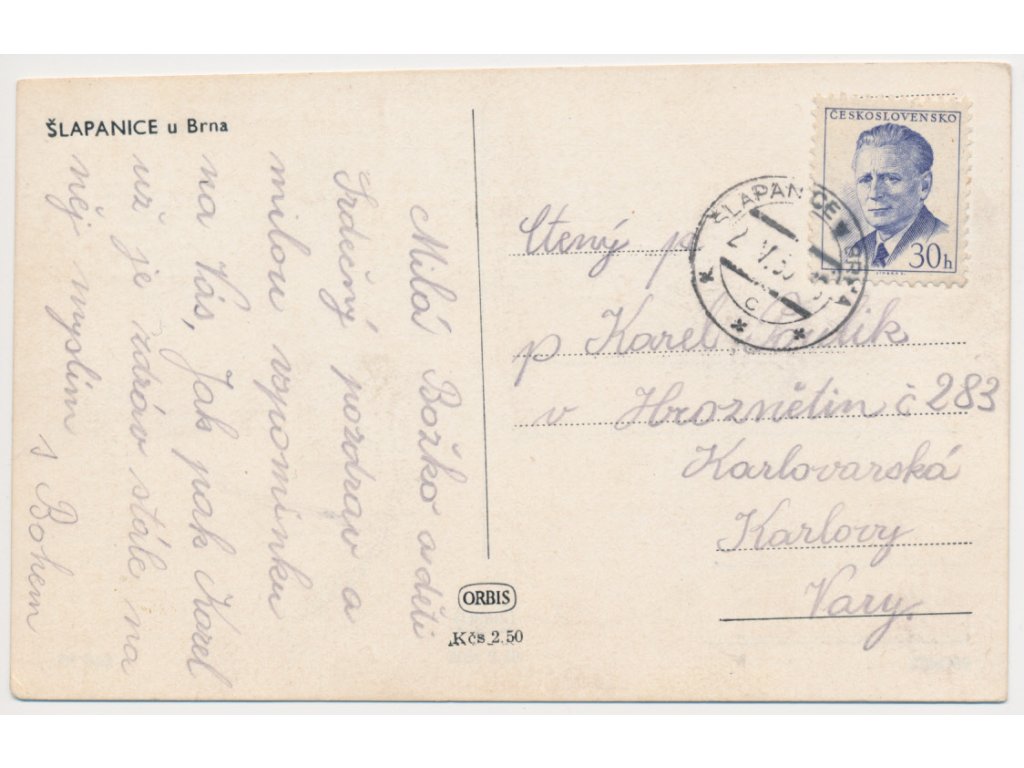 ŠLAPANICE u Brna
Milá Božko a děti
Srdečný pozdrav a
milou vzpomínku
na Vás, Jak pak Karel
už je zdráv stále na
něj myslím
s Bohem
ČESKOSLOVENSKO
30h
ŠLAPANICE u BRNA
C
Ctený p
p Karel
v Hroznětin č 283
Karlovarská
Karlovy
Vary.
ORBIS
Kčs 2.50